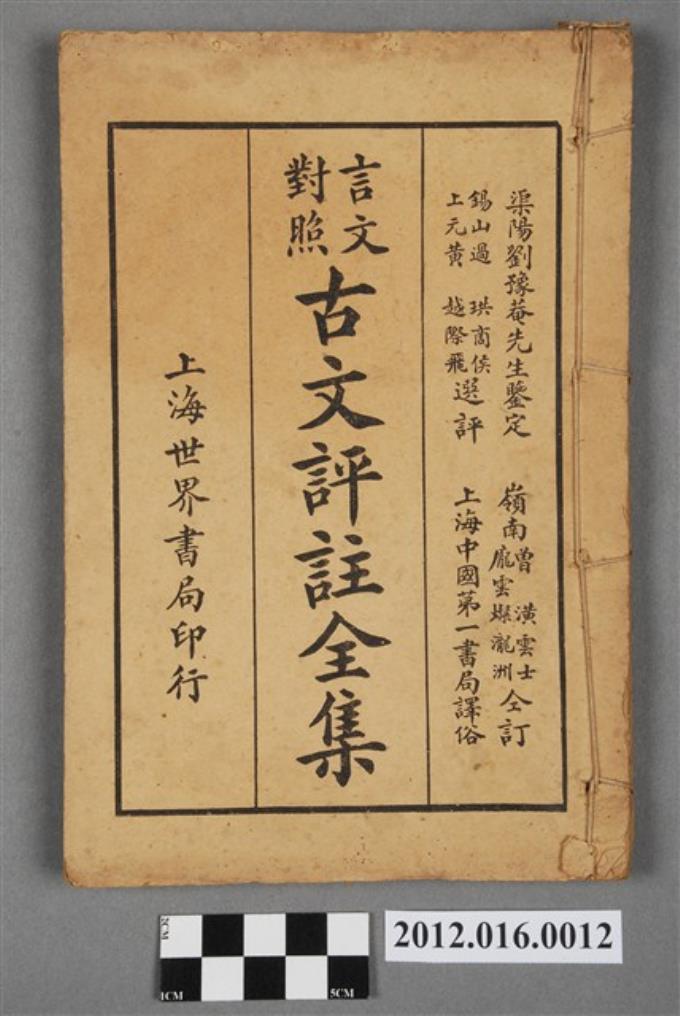 渠陽劉豫菴先生鑒定
錫山過 珙商侯
上元黃 越際飛
選評
嶺南曾 潢雲士
龐雲燦瀧洲
仝訂
上海中國第一書局譯俗
言文
對照
古文評註全集
上海世界書局印行
2CM
1CM
5CM
2012.016.0012